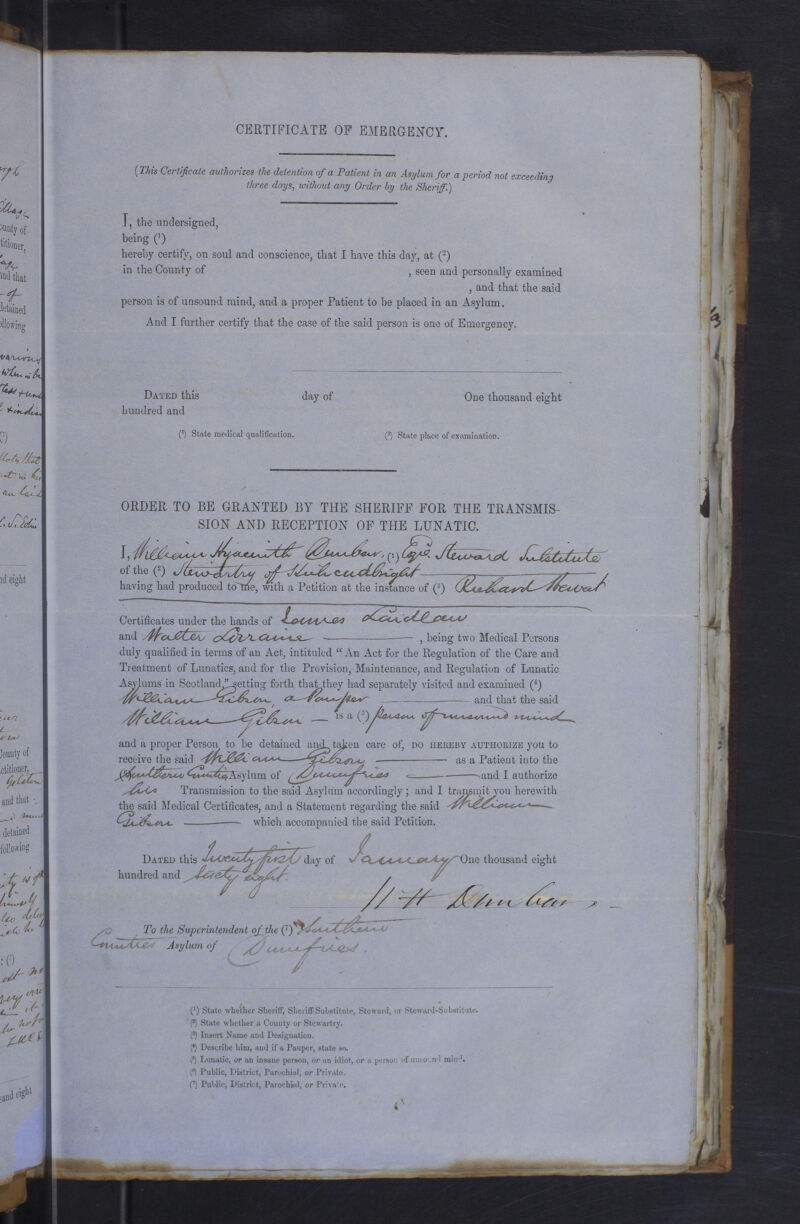 CERTIFICATE OF EMERGENCY.
(This Certificate authorizes the detention of a Patient in an Asylum for a period not exceeding
three days, without any Order by the Sheriff.)
I, the undersigned,
being (¹)
hereby certify, on soul and conscience, that I have this day, at (²)
in the County of , seen and personally examined
, and that the said
person is of unsound mind, and a proper Patient to be placed in an Asylum.
And I further certify that the case of the said person is one of Emergency.
DATED this day of One thousand eight
hundred and
(¹) State medical qualification. (²) State place of examination.
ORDER TO BE GRANTED BY THE SHERIFF FOR THE TRANSMIS-
SION AND RECEPTION OF THE LUNATIC.
I, William Hyacinth Dunbar, (¹) Esqre. Steward Substitute
of the (²) Stewartry of Kirkcudbright
having had produced to me, with a Petition at the instance of (³) Richard Hewat
Certificates under the hands of James Laidlaw
and Walter Lorraine , being two Medical Persons
duly qualified in terms of an Act, intituled "An Act for the Regulation of the Care and
Treatment of Lunatics, and for the Provision, Maintenance, and Regulation of Lunatic
Asylums in Scotland," setting forth that they had separately visited and examined (⁴)
William Gibson, a Pauper and that the said
William Gibson is a (⁵) person of unsound mind
and a proper Person to be detained and taken care of, DO HEREBY AUTHORIZE you to
receive the said William Gibson as a Patient into the
(⁶) Southern Counties Asylum of Dumfries and I authorize
his Transmission to the said Asylum accordingly; and I transmit you herewith
the said Medical Certificates, and a Statement regarding the said William
Gibson which accompanied the said Petition.
DATED this Twenty first day of January One thousand eight
hundred and Sixty eight.
W H Dunbar
To the Superintendent of the (⁷) Southern
Counties Asylum of Dumfries.
(¹) State whether Sheriff, Sheriff-Substitute, Steward, or Steward-Substitute.
(²) State whether a County or Stewartry.
(³) Insert Name and Designation.
(⁴) Describe him, and if a Pauper, state so.
(⁵) Lunatic, or an insane person, or an idiot, or a person of unsound mind.
(⁶) Public, District, Parochial, or Private.
(⁷) Public, District, Parochial, or Private.